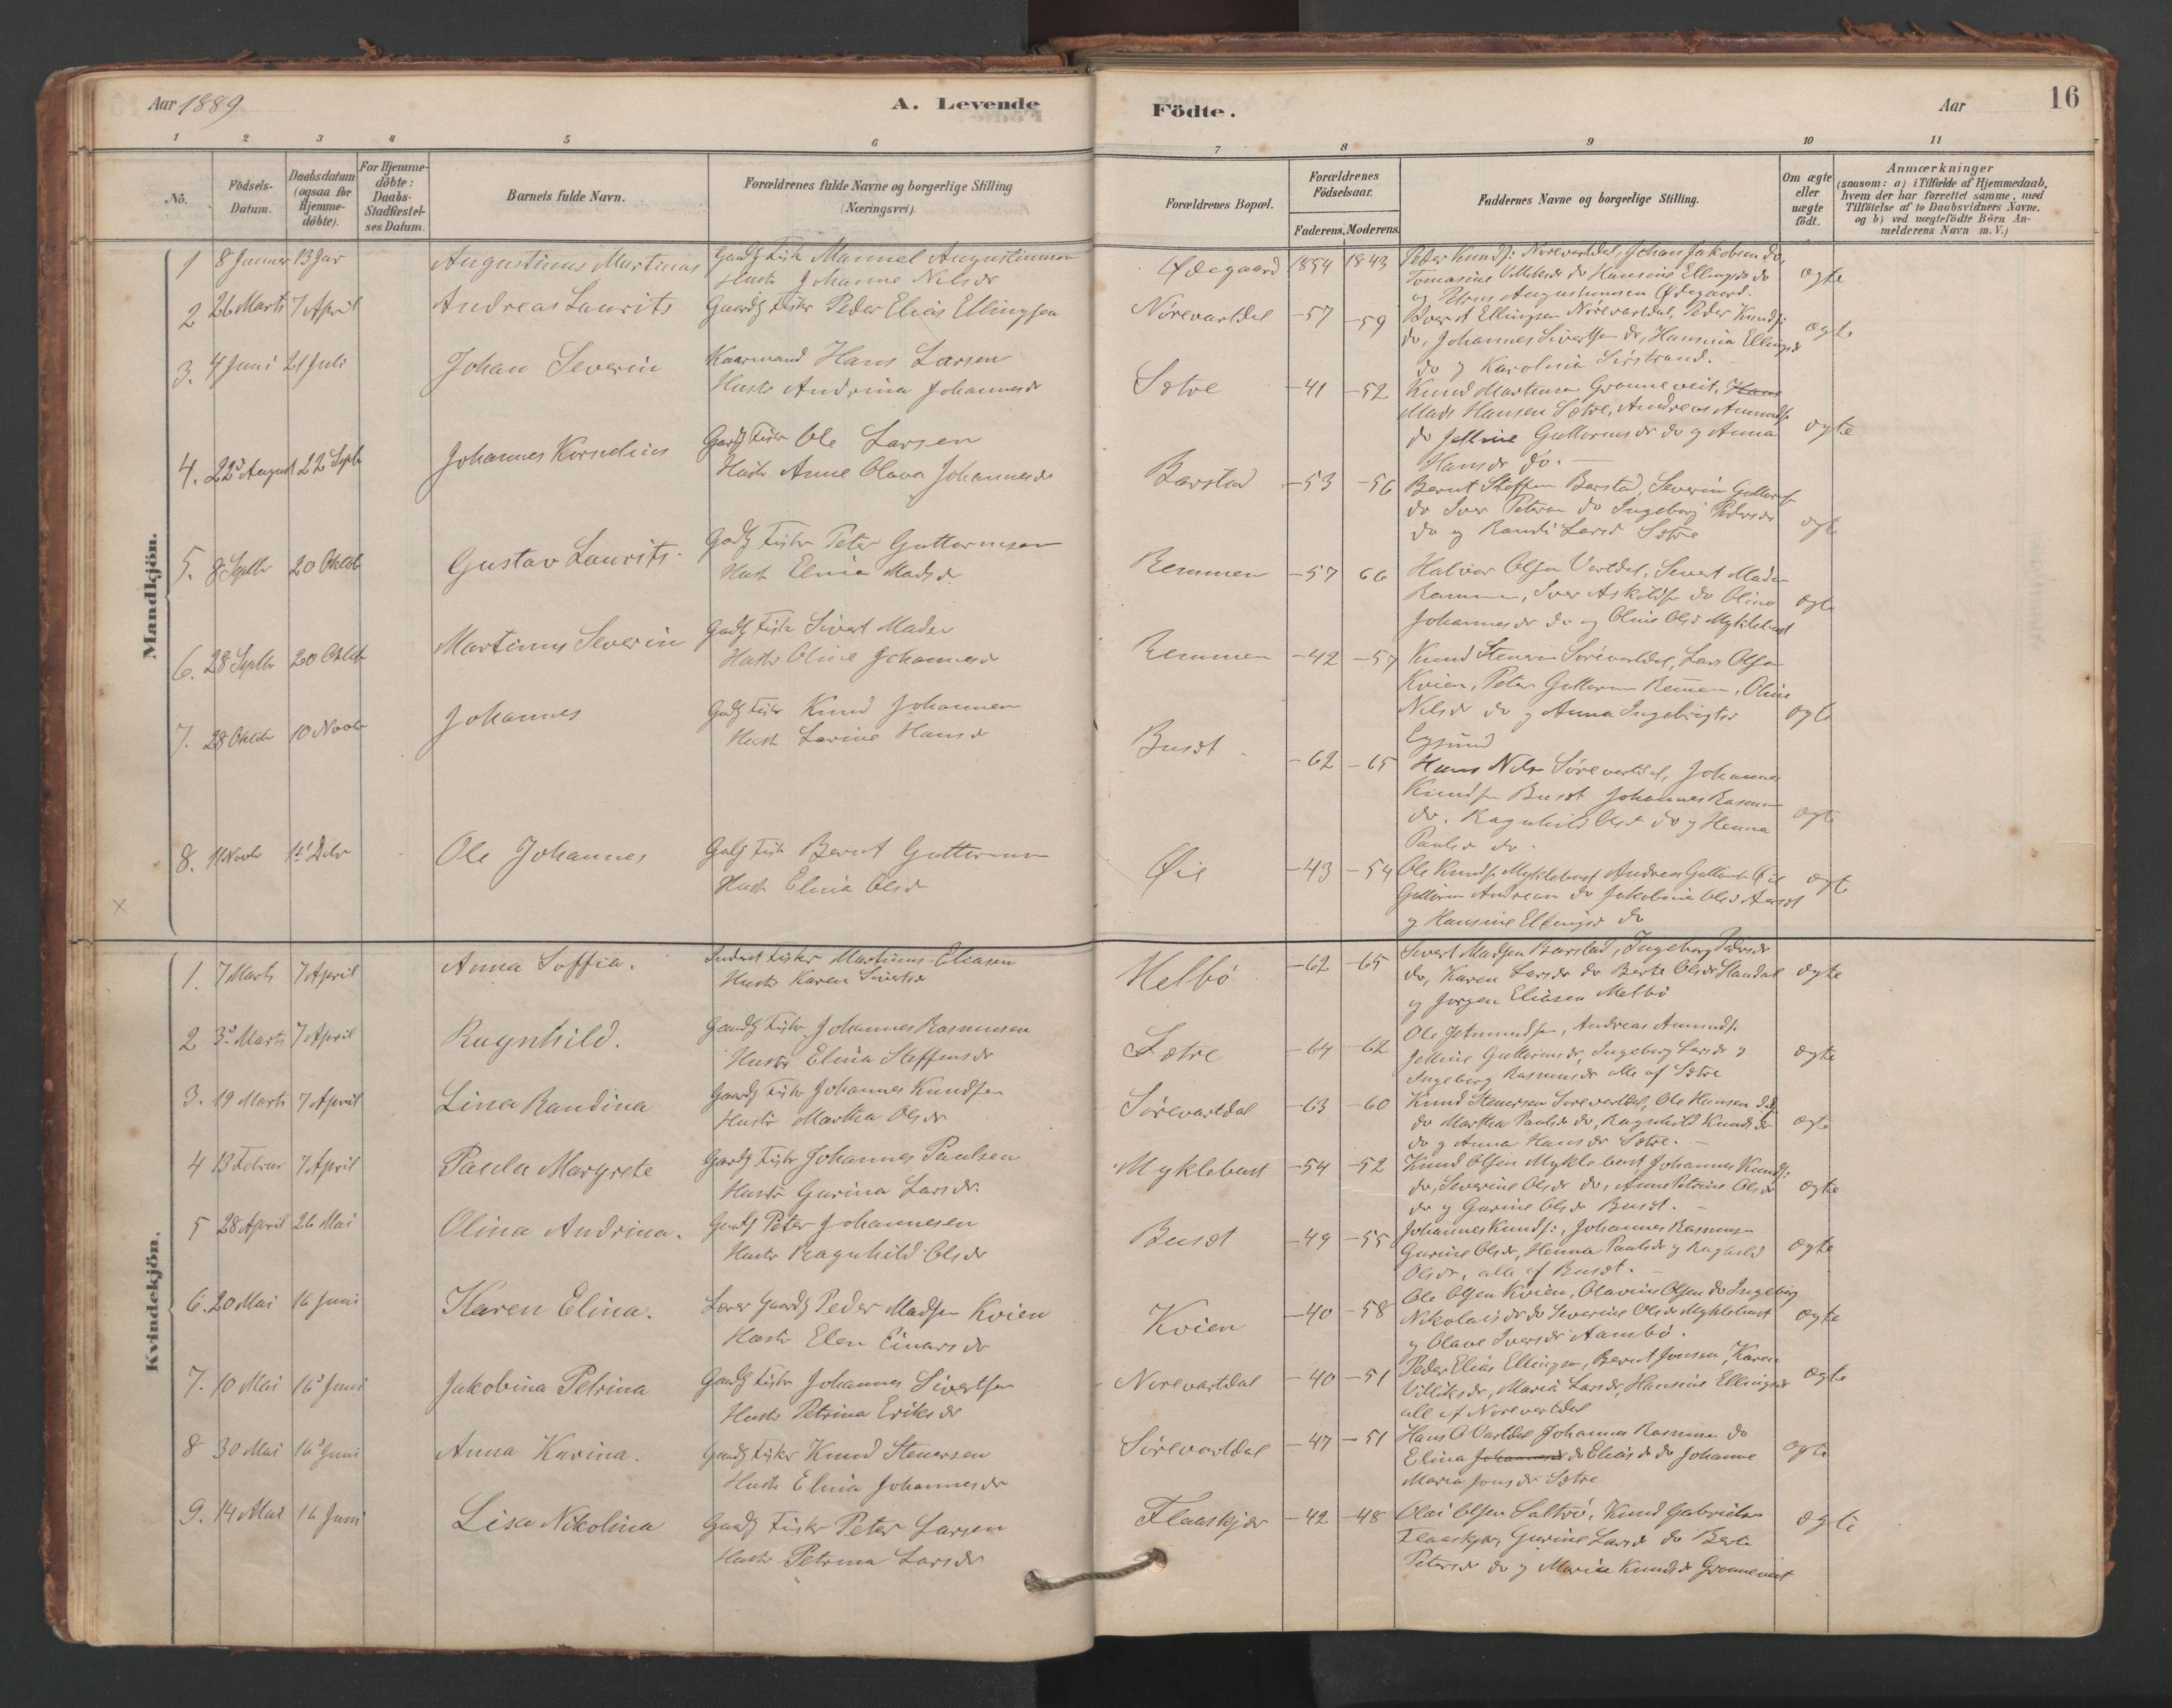 Aar 1889
A. Levende
Födte.
Aar
16
1 2 3 4 5 6 7 8 9 10 11
No.
Födsels-
Datum.
Daabsdatum
(ogsaa for
Hjemme-
döbte).
For Hjemme-
döbte:
Daabs-
Stadfæstel-
ses Datum.
Barnets fulde Navn.
Forældrenes fulde Navne og borgerlige Stilling
(Næringsvei).
Forældrenes Bopæl.
Forældrenes
Födselsaar.
Faderens. Moderens.
Faddernes Navne og borgerlige Stilling.
Om ægte
eller
uægte
födt.
Anmærkninger
(saasom: a) i Tilfælde af Hjemmedaab,
hvem der har forrettet samme, med
Tilföielse af to Daabsvidners Navne,
og b) ved uægtefödte Börn An-
melderens Navn m. V.)
Mandkjön.
1 8 Januar 13 Jan Augustinus Martinus Gaardb Fisk Manuel Augustinussen
Hustr Johanne Nilsdr
Ødegaard 1854 1843 Peder Knuds: Norevartdal, Johan Jakobsen do,
Tomasine do Hansine Ellingsdr do
og Petrus Augustinussen Ødegaard.
ægte
2 26 Marts 7 April Andreas Laurits Gaardb Fisker Peder Elias Ellingsen
Nörevartdal -57 -59 Ellingsen Nörevartdal, Peder Knuds:
do, Johannes Sivertsen do, Hansina Ellingsd
do og Karolina Sörstrand.
ægte
3. 4 Juni 21 Juli Johan Severin Kaarmand Hans Larsen
Hustr Andrina Johannesdr
Sætre -41 -52 Knud Martinsen Grönneveit, Hans
Mads Hansen Sætre, Andreas Amunds
do Jetline Guttormsdr do og Anna
Hansdr do.
ægte
4. 22 August 22 Septb Johannes Kornelius Gardb Fisker Ole Larsen
Hustr Anne Olava Johannesdr
Barstad -53 -56 Bernt Steffens Barstad, Severin Guttorms
do Iver Petersen do Ingeborg Pedersdr
do og Randi Larsd Sætre
ægte
5. 8 Septbr 20 Oktob Gustav Laurits. Gadb Fisker Peter Guttormsen
Hustr Elina Madsdr
Remmen -57 66 Halvar Olsen Vartdal, Sivert Mads
Remmen, Iver Askilds do Oline
Johannesdr do og Oline Olsd Myklebust
ægte
6. 28 Septbr 20 Oktob Martinus Severin Gadb Fisker Sivert Madsen
Hustr Oline Johannesdr
Remmen -42 -57 Knud Stenersen Sörevartdal, Lars Olsen
Kvien, Peter Guttormsen Remmen, Oline
Nilsdr do og Anna Ingebrigtsd
ægte
7. 28 Oktob 10 Novbr Johannes Gadb Fisker Knud Johannessen
Hustr Lovine Hansdr
Busæt -62 -65 Hans Nils Sörevartdal, Johannes
Knuds Busæt Johannes Rasmussen
do. Ragnhild Olsd do og Henna
Paulsd do.
ægte
8. 11 Novbr 1st Debr Ole Johannes Gadb Fisk Bernt Guttormsen
Hustr Elina Olsdr
Øie -43 -54 Ole Knuds Myklebust Andreas Guttorms Øie
Guttorm Andreasen do Jakobine Olsd Aarsæt
og Hansine Ellingsd do
ægte
Kvindekjön.
1. 7 Marts 7 April Anna Soffia. Inderst Fisker Martinus Eliasen
Hustr Karen Sivertsdr
Melbö -62 -65 Sivert Madsen Barstad, Ingeborg Pedersdr
do, Karen Larsdr do Berte Olsdr Standal
og Jörgen Eliasen Melbö
ægte
2 3 Marts 7 April Ragnhild. Gaardb Fisker Johannes Rasmussen
Hustr Elina Steffensdr
Sætre -64 -62 Ole Jetmunds, Andreas Amunds
Jetline Guttormsdr, Ingeborg Larsdr og
Ingeborg Rasmusdr alle af Sætre
ægte
3. 19 Marts 7 April Lina Randina Gaardb Fisker Johannes Knudsen
Hustr Martha Olsdr
Sörevartdal -63 -60 Knud Stenersen Sörevartdal, Ole Hansen
do Martha Paulsd do, Ragnhild Knudsdr
do og Anna Hansdr Sætre.
ægte
4 13 Februar 7 April Paula Margrete Gardb Fisker Johannes Paulsen
Hustr Gurina Larsdr.
Myklebust -54 -52 Knud Olsen Myklebust Johannes Knuds:
do, Severine Olsdr do, Anne Petrine Olsdr
do og Gurine Olsdr Busæt.
ægte
5 28 April 26 Mai Olina Andrina. Gaardb Peter Johannesen
Hustr Ragnhild Olsdr
Busæt -49 -55 Johannes Knuds:, Johannes Rasmussen
Gurine Olsdr, Henna Paulsdr og Ragnhild
Olsdr, alle af Busæt.
ægte
6. 20 Mai 16 Juni Karen Elina. Lærer Gaardb Peder Madsen Kvien
Hustr Elen Einarsdr
Kvien -40 -58 Ole Olsen Kvien, Olavius Olsen do Ingeborg
Nikolaisdr do Severine Olsdr Myklebust
og Olave Iversdr Aambö.
ægte
7. 10 Mai 16 Juni Jakobina Petrina Gaardb Fisker Johannes Sivertsen
Hustr Petrina Eriksdr
Norevartdal -40 -51 Peder Elias Ellingsen, Bernt Jonsen, Karen
Villiksdr, Maria Larsdr, Hansine Ellingsdr
alle af Norevartdal
ægte
8 30 Mai 16 Juni Anna Karina. Gaardb Fisker Knud Stenersen
Hustr Elina Johannesdr
Sörevartdal -47 -51 Hans O Vartdal Johannes Rasmussen do
Elina Johannesd do Eliasdr do Johanne
Maria Jonsdr Sætre
ægte
9. 14 Mai 16 Juni Lisa Nikolina Gaardb Fisker Peter Larsen
Hustr Petrina Larsdr
Flaaskjær -42 -48 Olai Olsen Saltrö, Knud Gabrielsen
Flaaskjær, Gurine Larsd do Berte
Petersdr do og Marie Knudsdr Grönneveit
ægte